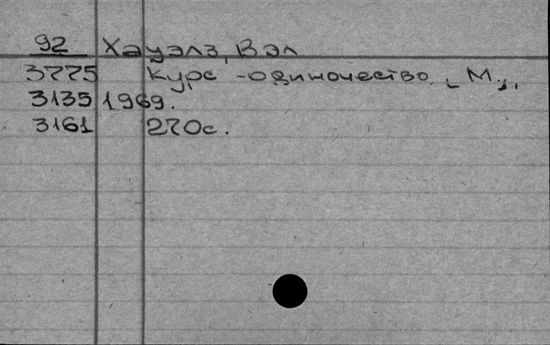 92 Хауэлз, Вэл
3775 Курс - одиночество. М.,
3135 1969.
3161 270с.